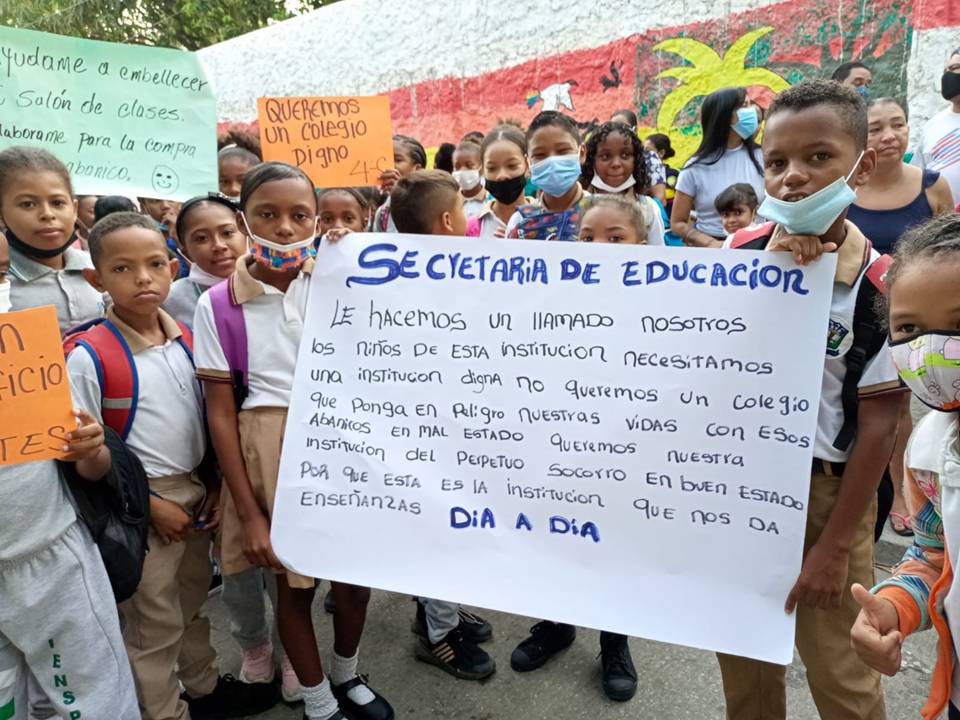 yudame a embellecer
Salón de clases.
laborame para la compra
abanico.
QUEREMOS
UN COLEGIO
DIGNO
4-C
SECYETARIA DE EDUCACION
LE HACEMOS UN llAMADO NOSOTROS
los niños DE ESTA INSTITUCION NECESITAMOS
una institucion digna no queremos un colegio
que Ponga EN Peligro NUESTRAS VIDAS CON ESOS
ABANICOS EN MAL ESTADO QUEREMOS NUESTRA
INSTITUCION DEL PERPETUO SOCORRO EN buEN ESTADO
POR QUE ESTA ES LA INSTITUCION QUE NOS DA
ENSEÑANZAS DIA A DIA
FICIO
TES
IENSP